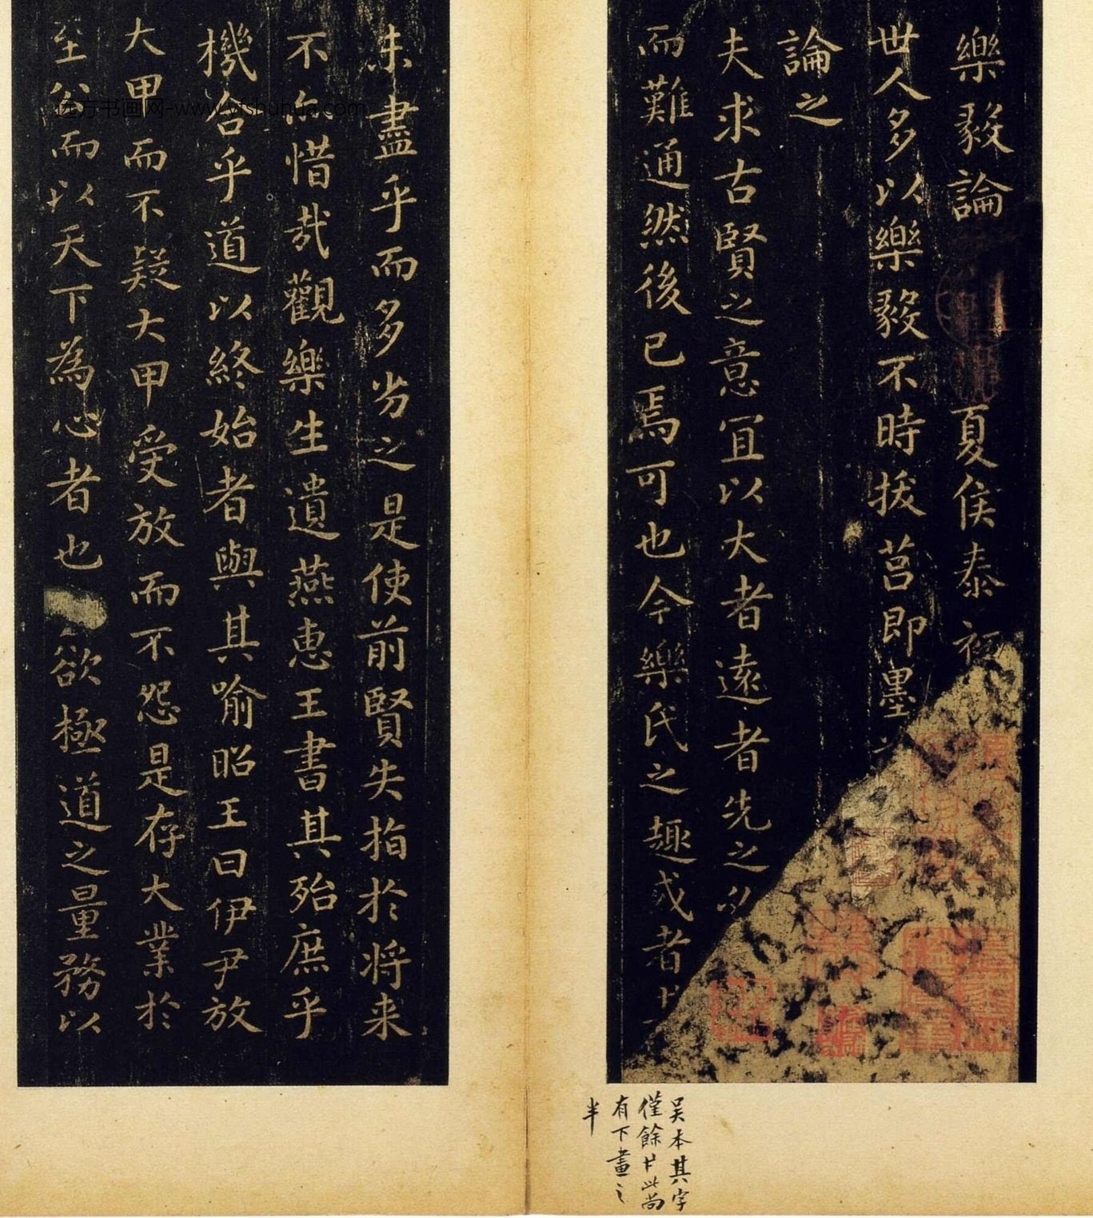 樂毅論 夏侯泰初
世人多以樂毅不時拔莒即墨
論之
夫求古賢之意宜以大者遠者先之
而難通然後已焉可也今樂氏之趣或者
未盡乎而多劣之是使前賢失指於将来
不惜哉觀樂生遺燕惠王書其殆庶乎
機合乎道以終始者與其喻昭王曰伊尹放
大甲而不疑大甲受放而不怨是存大業於
至公而以天下為心者也欲極道之量務以
吴本其字
僅餘廿此尚
有下畫之
半